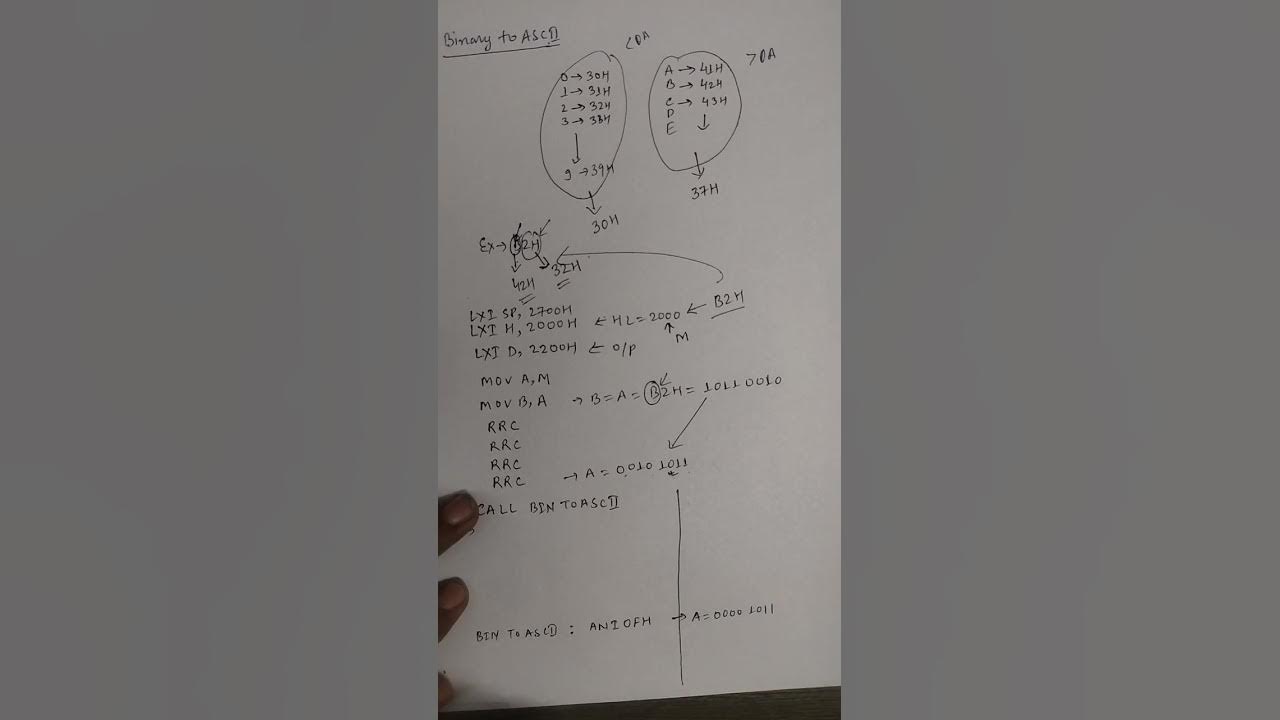 Binary to ASCII
<0A
0 → 30H
1 → 31H
2 → 32H
3 → 33H
↓
9 → 39H
↓
30H
>0A
A → 41H
B → 42H
C → 43H
D
E ↓
↓
37H
Ex → B2H
42H 32H
LXI SP, 2700H
LXI H, 2000H ← HL = 2000 ← B2H
↑
M
LXI D, 2200H ← O/P
MOV A, M
MOV B, A → B = A = B2H = 1011 0010
RRC
RRC
RRC
RRC → A = 0010 1011
CALL BIN TOASCII
BIN TOASCII : ANI 0FH → A = 0000 1011